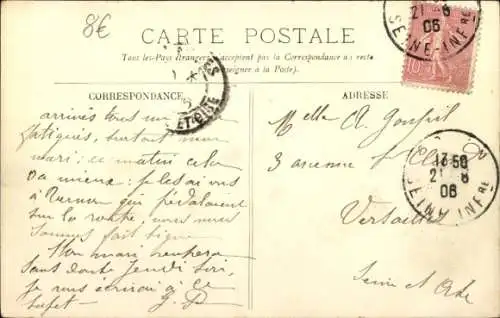 8€
CARTE POSTALE
Tous les Pays étrangers n'acceptent pas la Correspondance au recto
(se renseigner à la Poste).
CORRESPONDANCE
ADRESSE
arrivés tous un peu
fatigués, surtout mon
mari; ce matin cela
va mieux; je les ai vus
à Vernon qui pédalaient
sur la route, nous nous
sommes fait signe
Mon mari rentrera
sans doute Jeudi soir,
je vous écrirai à ce
sujet. G. D
Melle A. Gonfil
3 avenue
Versailles
Seine et Oise
21 8
06
SEINE-INFRE
10
ET-OISE
13 50
21 8
06
SEINE-INFRE